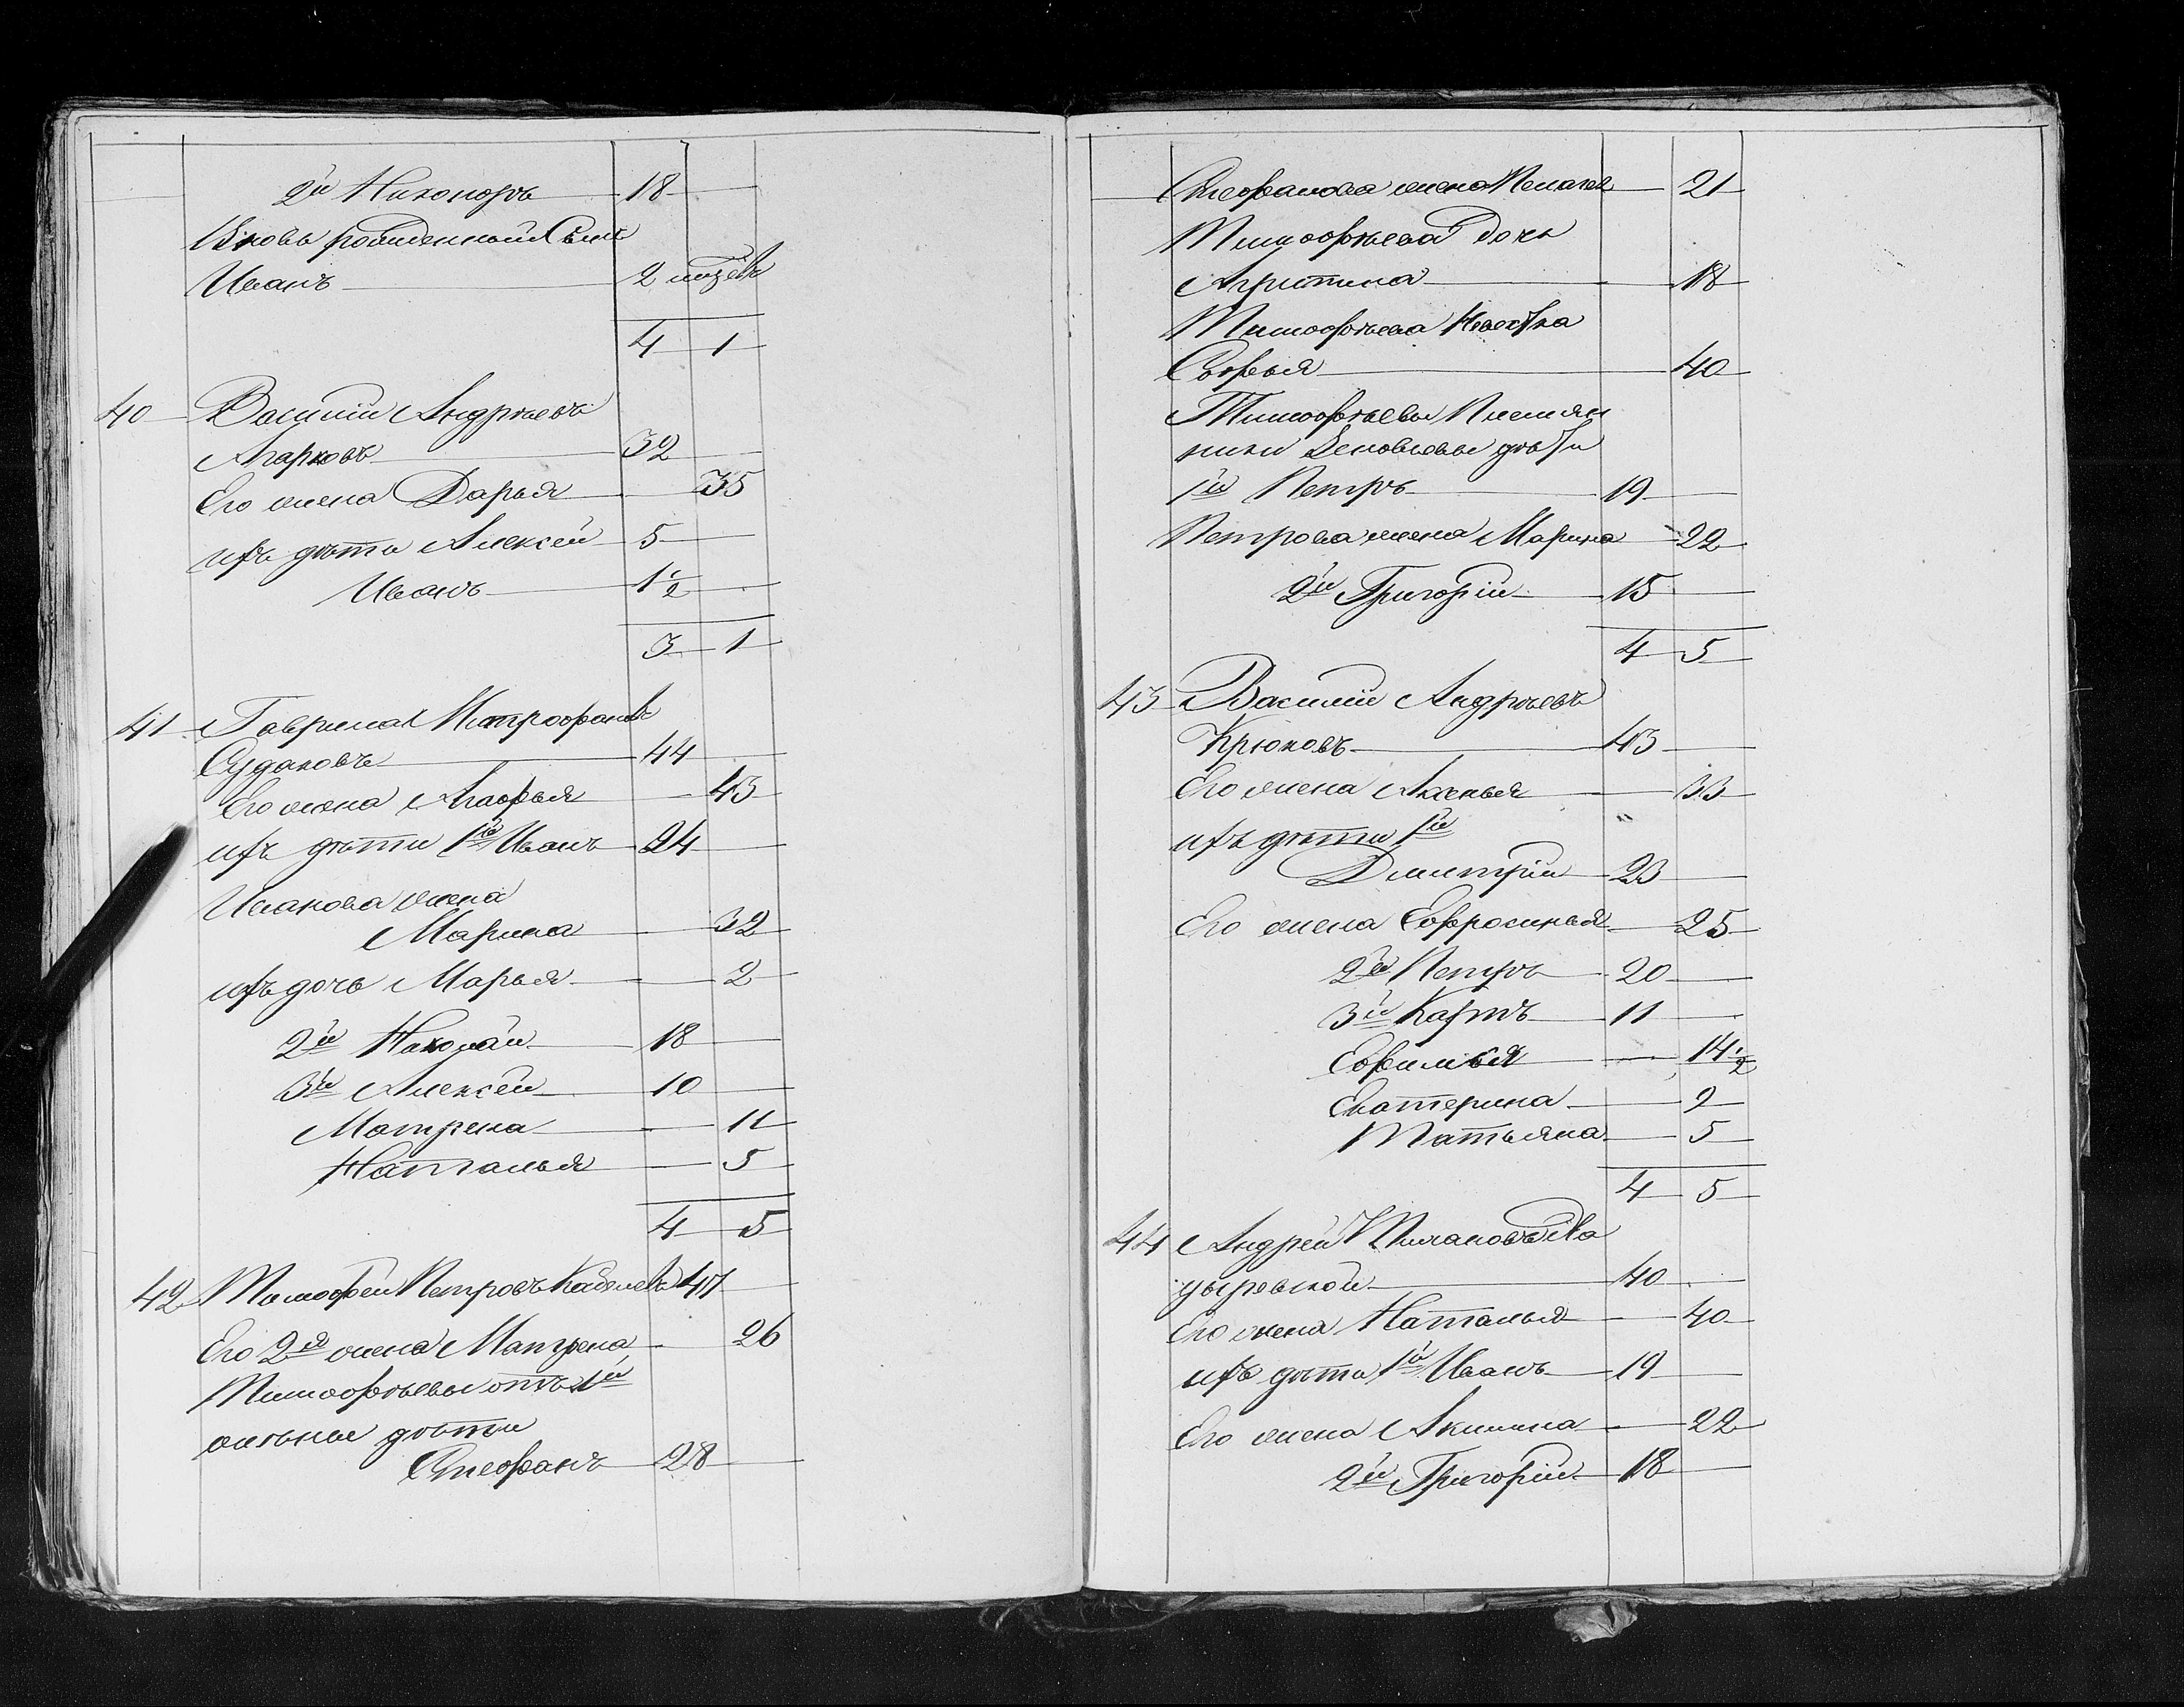 2й Никоноръ 18
Вновь рожденный Сынъ
Иванъ 2 
4 1
40 Василій Андрѣевъ
Агарковъ 32
Его жена Дарья 35
ихъ дѣти Алексей 5
Иванъ 1½
3 1
41 Гаврила Митрофановъ
Судаковъ 44
Его жена Агафья 43
ихъ дѣти 1й Иванъ 24
Иванова жена
Марина 32
ихъ дочь Марья 2
2й Николай 18
3й Алексей 10
Матрена 11
Наталья 5
4 5
42 Тимофей Петровъ 47
Его 2я жена Матрена 26
Тимофѣевы отъ 1й
жены дѣти
Стефанъ 28
Стефанова жена Пелагея 21
Тимофѣева Дочь
Агрипина 18
Тимофѣева Невестка
Софья 40
Тимофѣевы Племян
ники Зеновьевы дѣти
1й Петръ 19
Петрова жена Марина 22
2й Григорій 15
4 5
43 Василій Андрѣевъ
Крюковъ 43
Его жена Аксенья 33
ихъ дѣти 1й
Дмитрій 23
Его жена Еофросинья 25
2й Петръ 20
3й Карпъ 11
Еофимья 14½
Екатерина 9
Татьяна 5
4 5
44 Андрей Ка
цыревской 40
Его жена Наталья 40
ихъ дѣти 1й Иванъ 19
Его жена Акилина 22
2й Григорій 18